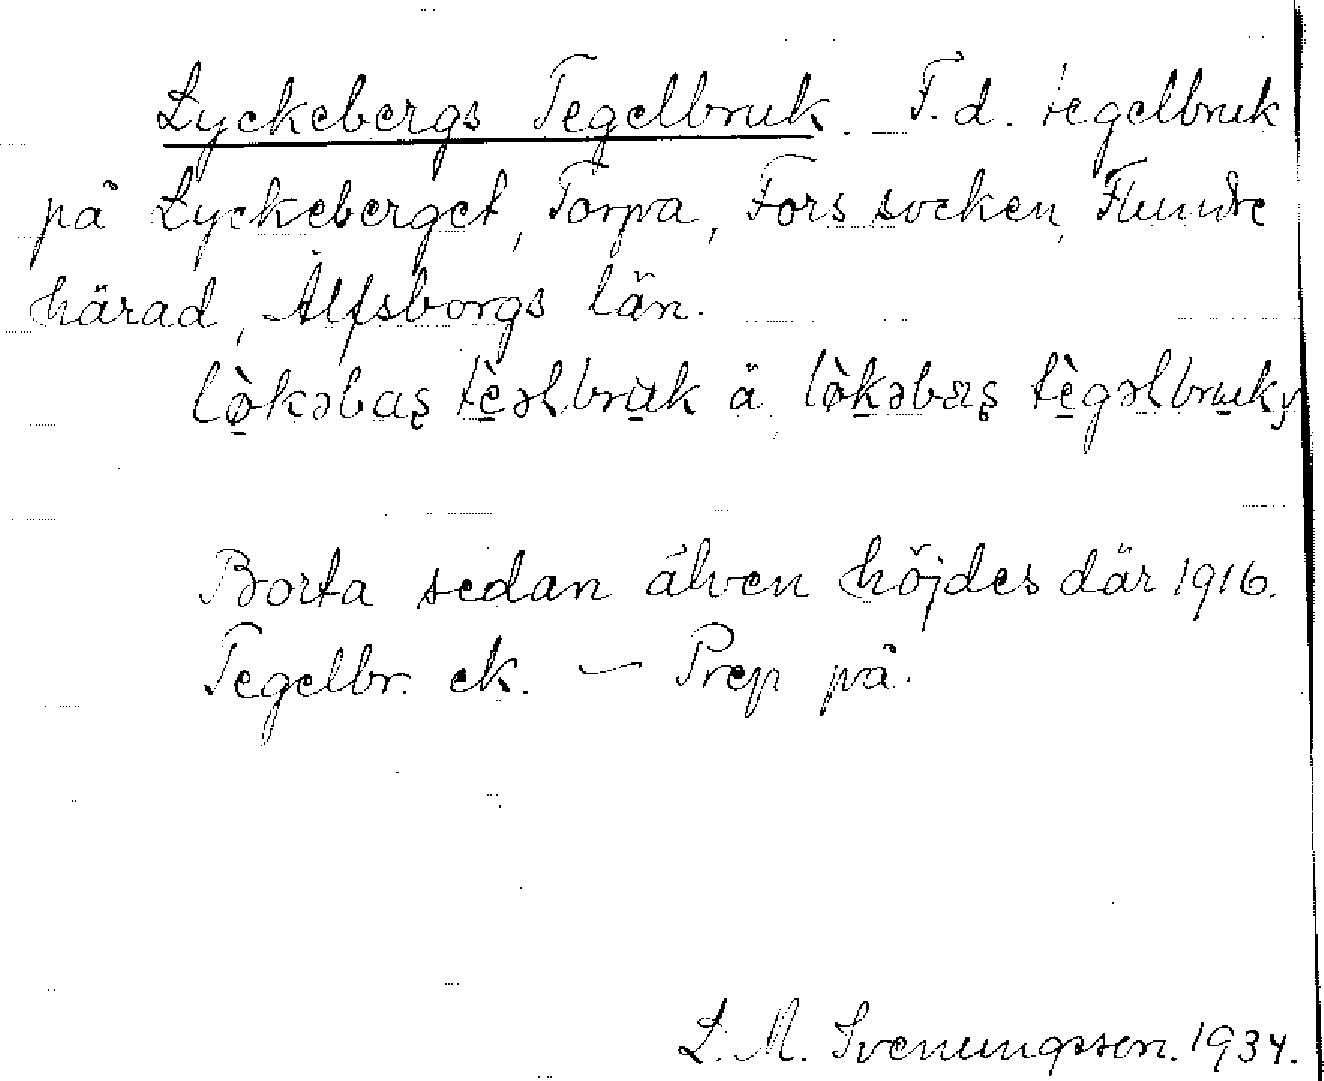 Lyckebergs Tegelbruk. F.d. tegelbruk
på Lyckeberget, Torpa, Fors socken, Flundre
härad, Älfsborgs län.
lø̀kəbaş tèəlbruk ä lø̀kəbæş tègəlbruk
Borta sedan älven höjdes där 1916.
Tegelbr. ek. — Prep på.
L. M. Svenungsson. 1934.